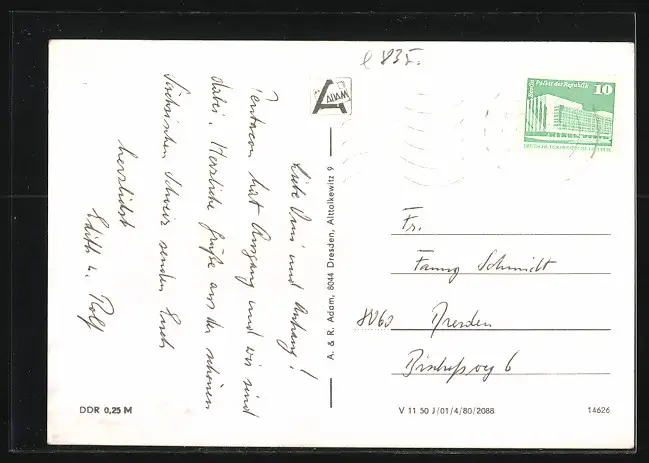 e 835.
ADAM
Berlin, Palast der Republik
10
DEUTSCHE DEMOKRATISCHE REPUBLIK
Liebe Omi und Anhang!
hat Ausgang und wir sind
dabei. Herzliche Grüße aus der schönen
Sächsischen Schweiz senden Euch
herzlichst
Edith u. Rolf
A. & R. Adam, 8044 Dresden, Alttolkewitz 9
Fr.
Fanny Schmidt
8060 Dresden
Bischofsweg 6
DDR 0,25 M
V 11 50 J/01/4/80/2088
14626